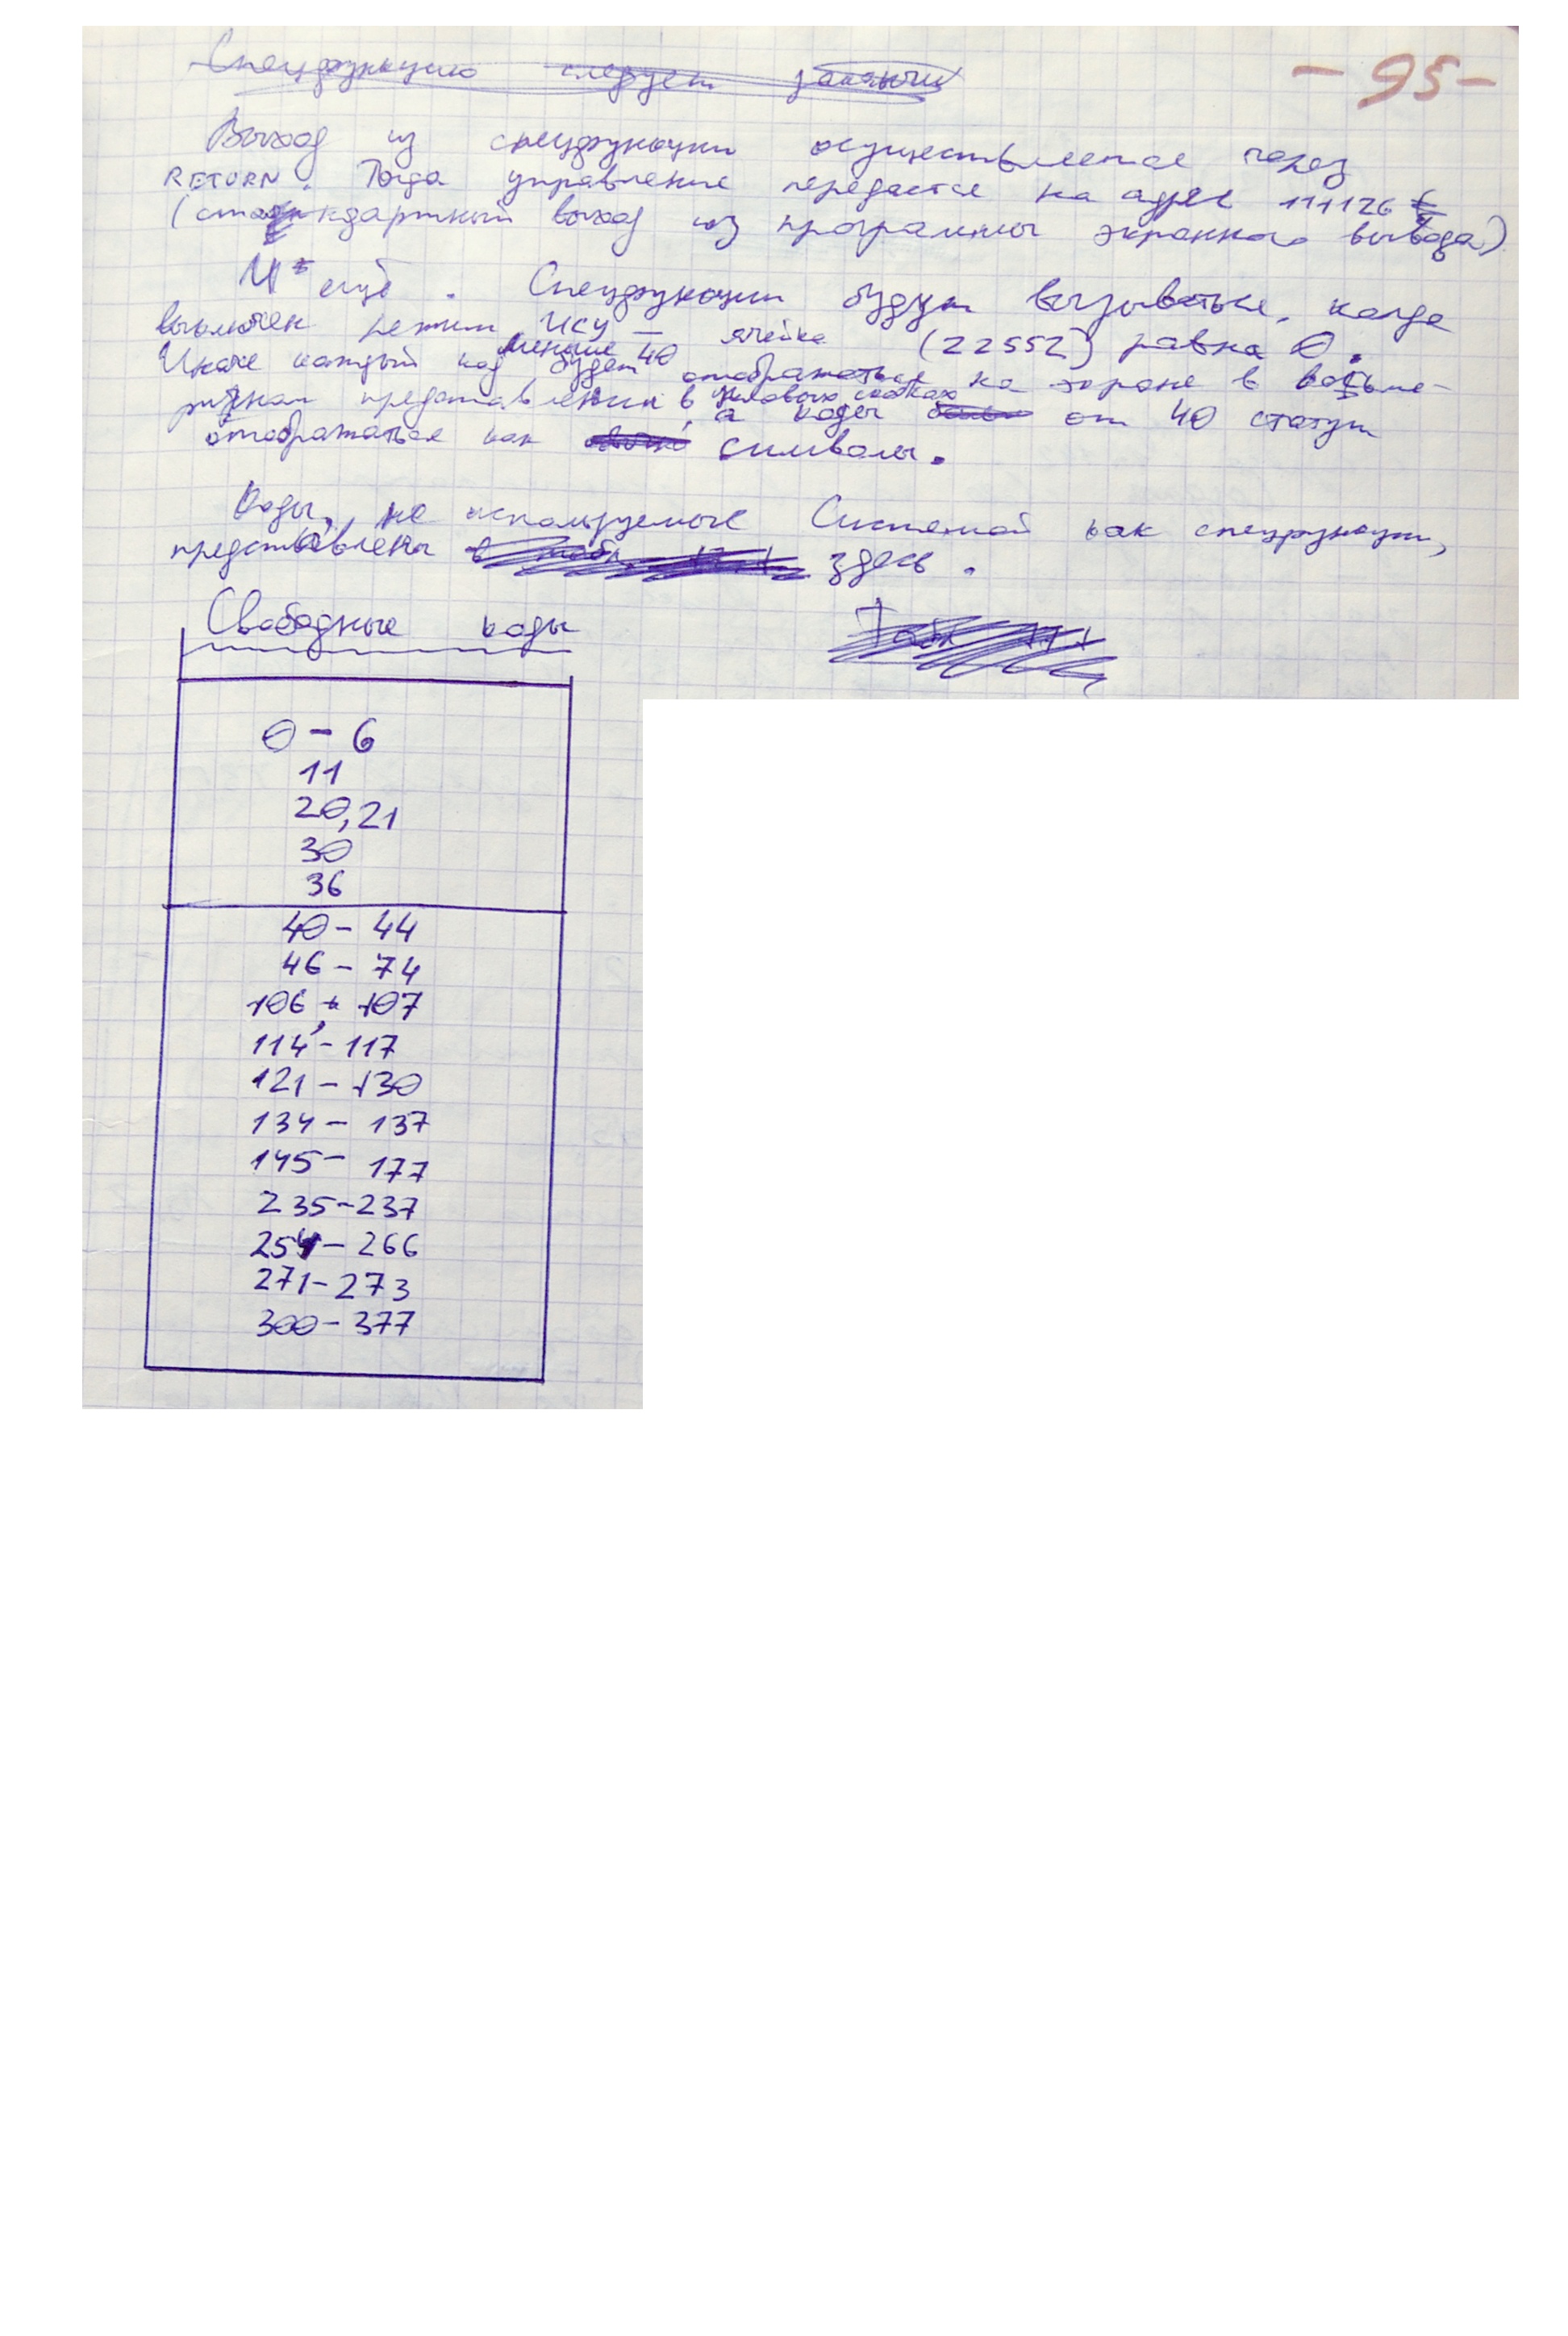 Спецфункцию следует
- 95 -
Выход из спецфункции осуществляется через
RETURN. Тогда управление передастся на адрес 111126
(стандартный выход из программы экранного вывода)
И ещё. Спецфункции будут вызываться, когда
выключен режим ИСУ — ячейка (22552) равна 0.
Иначе каждый код меньше 40 будет отображаться на экране в восьме-
ричном представлении в угловых скобках, а коды от 40 статут
отображаться как символы.
Коды, не используемые Системой как спецфункции,
представлены здесь.
Свободные коды
0 - 6
11
20, 21
30
36
40 - 44
46 - 74
106, 107
114 - 117
121 - 130
134 - 137
145 - 177
235 - 237
254 - 266
271 - 273
300 - 377